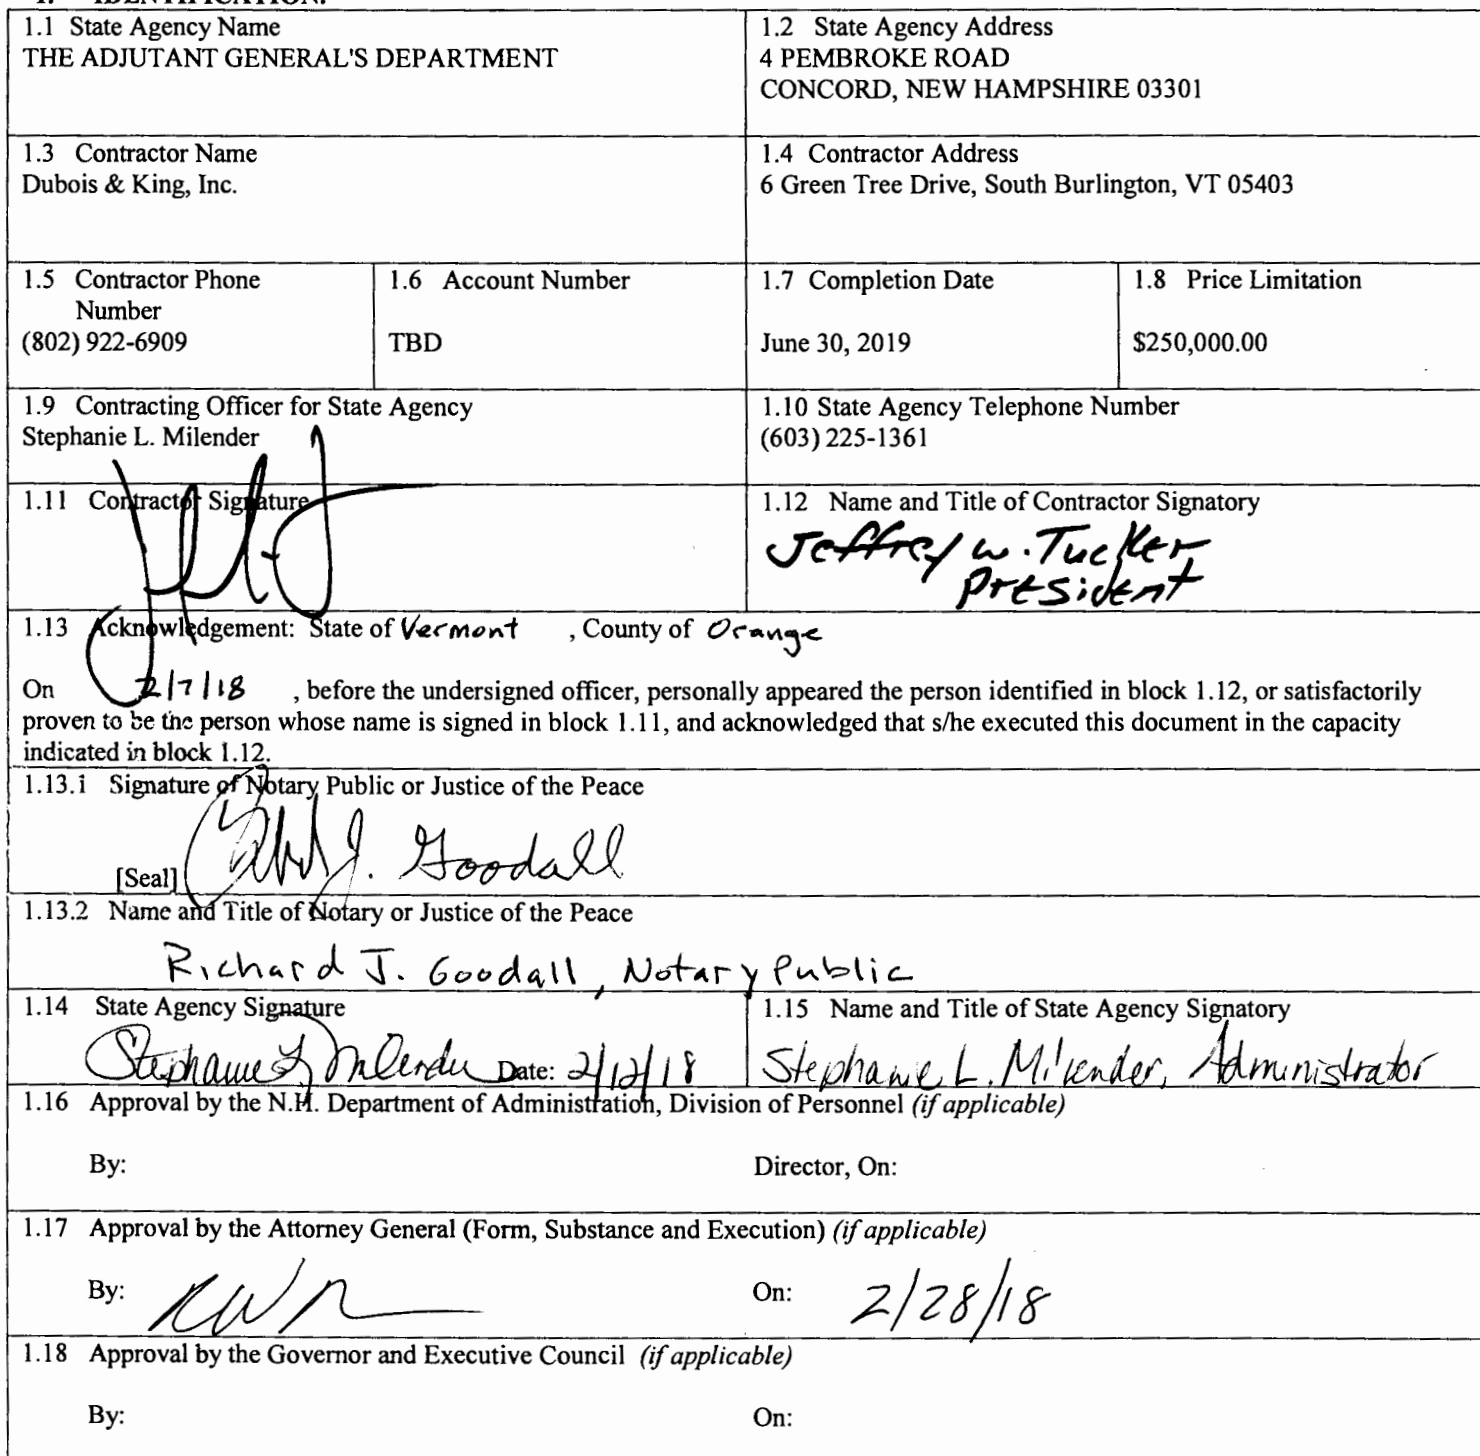 1. IDENTIFICATION.
1.1 State Agency Name
THE ADJUTANT GENERAL'S DEPARTMENT
1.2 State Agency Address
4 PEMBROKE ROAD
CONCORD, NEW HAMPSHIRE 03301
1.3 Contractor Name
Dubois & King, Inc.
1.4 Contractor Address
6 Green Tree Drive, South Burlington, VT 05403
1.5 Contractor Phone
Number
(802) 922-6909
1.6 Account Number
TBD
1.7 Completion Date
June 30, 2019
1.8 Price Limitation
$250,000.00
1.9 Contracting Officer for State Agency
Stephanie L. Milender
1.10 State Agency Telephone Number
(603) 225-1361
1.11 Contractor Signature
1.12 Name and Title of Contractor Signatory
Jeffrey W. Tucker
President
1.13 Acknowledgement: State of Vermont , County of Orange
On 2/7/18 , before the undersigned officer, personally appeared the person identified in block 1.12, or satisfactorily
proven to be the person whose name is signed in block 1.11, and acknowledged that s/he executed this document in the capacity
indicated in block 1.12.
1.13.1 Signature of Notary Public or Justice of the Peace
J. Goodall
[Seal]
1.13.2 Name and Title of Notary or Justice of the Peace
Richard J. Goodall, Notary Public
1.14 State Agency Signature
Stephanie L Milender Date: 2/12/18
1.15 Name and Title of State Agency Signatory
Stephanie L. Milender, Administrator
1.16 Approval by the N.H. Department of Administration, Division of Personnel (if applicable)
By: Director, On:
1.17 Approval by the Attorney General (Form, Substance and Execution) (if applicable)
By: On: 2/28/18
1.18 Approval by the Governor and Executive Council (if applicable)
By: On: